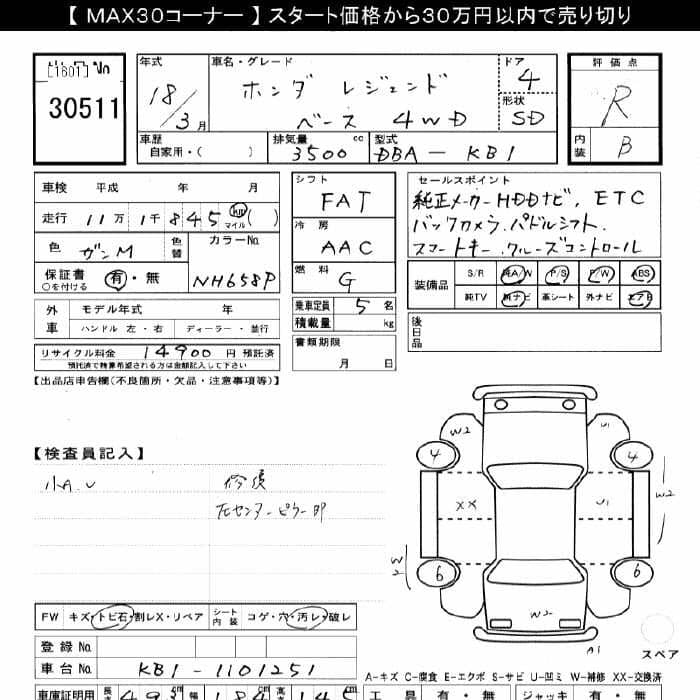 【 MAX30コーナー 】 スタート価格から30万円以内で売り切り
30511
年式
18/3月
車名・グレード
ホンダ レジェンド
ベース 4WD
ドア
4
形状
SD
評価点
R
内装
B
車歴
自家用・( )
排気量
3500 cc
型式
DBA - KB1
車検 平成 年 月
走行 11万 1千 845 km マイル ( )
色 ガンM 色替
カラーNo.
NH658P
保証書 有・無
○を付ける
外車 モデル年式 年
ハンドル 左・右 ディーラー・並行
リサイクル料金 14900 円 預託済
預託済で精算希望される方は金額記入して下さい
シフト
FAT
冷房
AAC
燃料
G
乗車定員 5 名
積載量 kg
書類期限
月 日
セールスポイント
純正メーカーHDDナビ, ETC
バックカメラ.パドルシフト.
スマートキー.クルーズコントロール
装備品 S/R 純A/W P/S P/W ABS
純TV 純ナビ 革シート 外ナビ エアB
後日品
【出品店申告欄(不良箇所・欠品・注意事項等)】
【検査員記入】
小A.U 修復
左センターピラー即
W2 U1
4 4
XX U1 W2
W2 6 6
W2
A1
スペア
FW キズ・トビ石・割レX・リペア シート内装 コゲ・穴・汚レ・破レ
登録 No.
車台 No. KB1-1101251
A-キズ C-腐食 E-エクボ S-サビ U-凹ミ W-補修 XX-交換済
車庫証明用
工具 有・無 ジャッキ 有・無